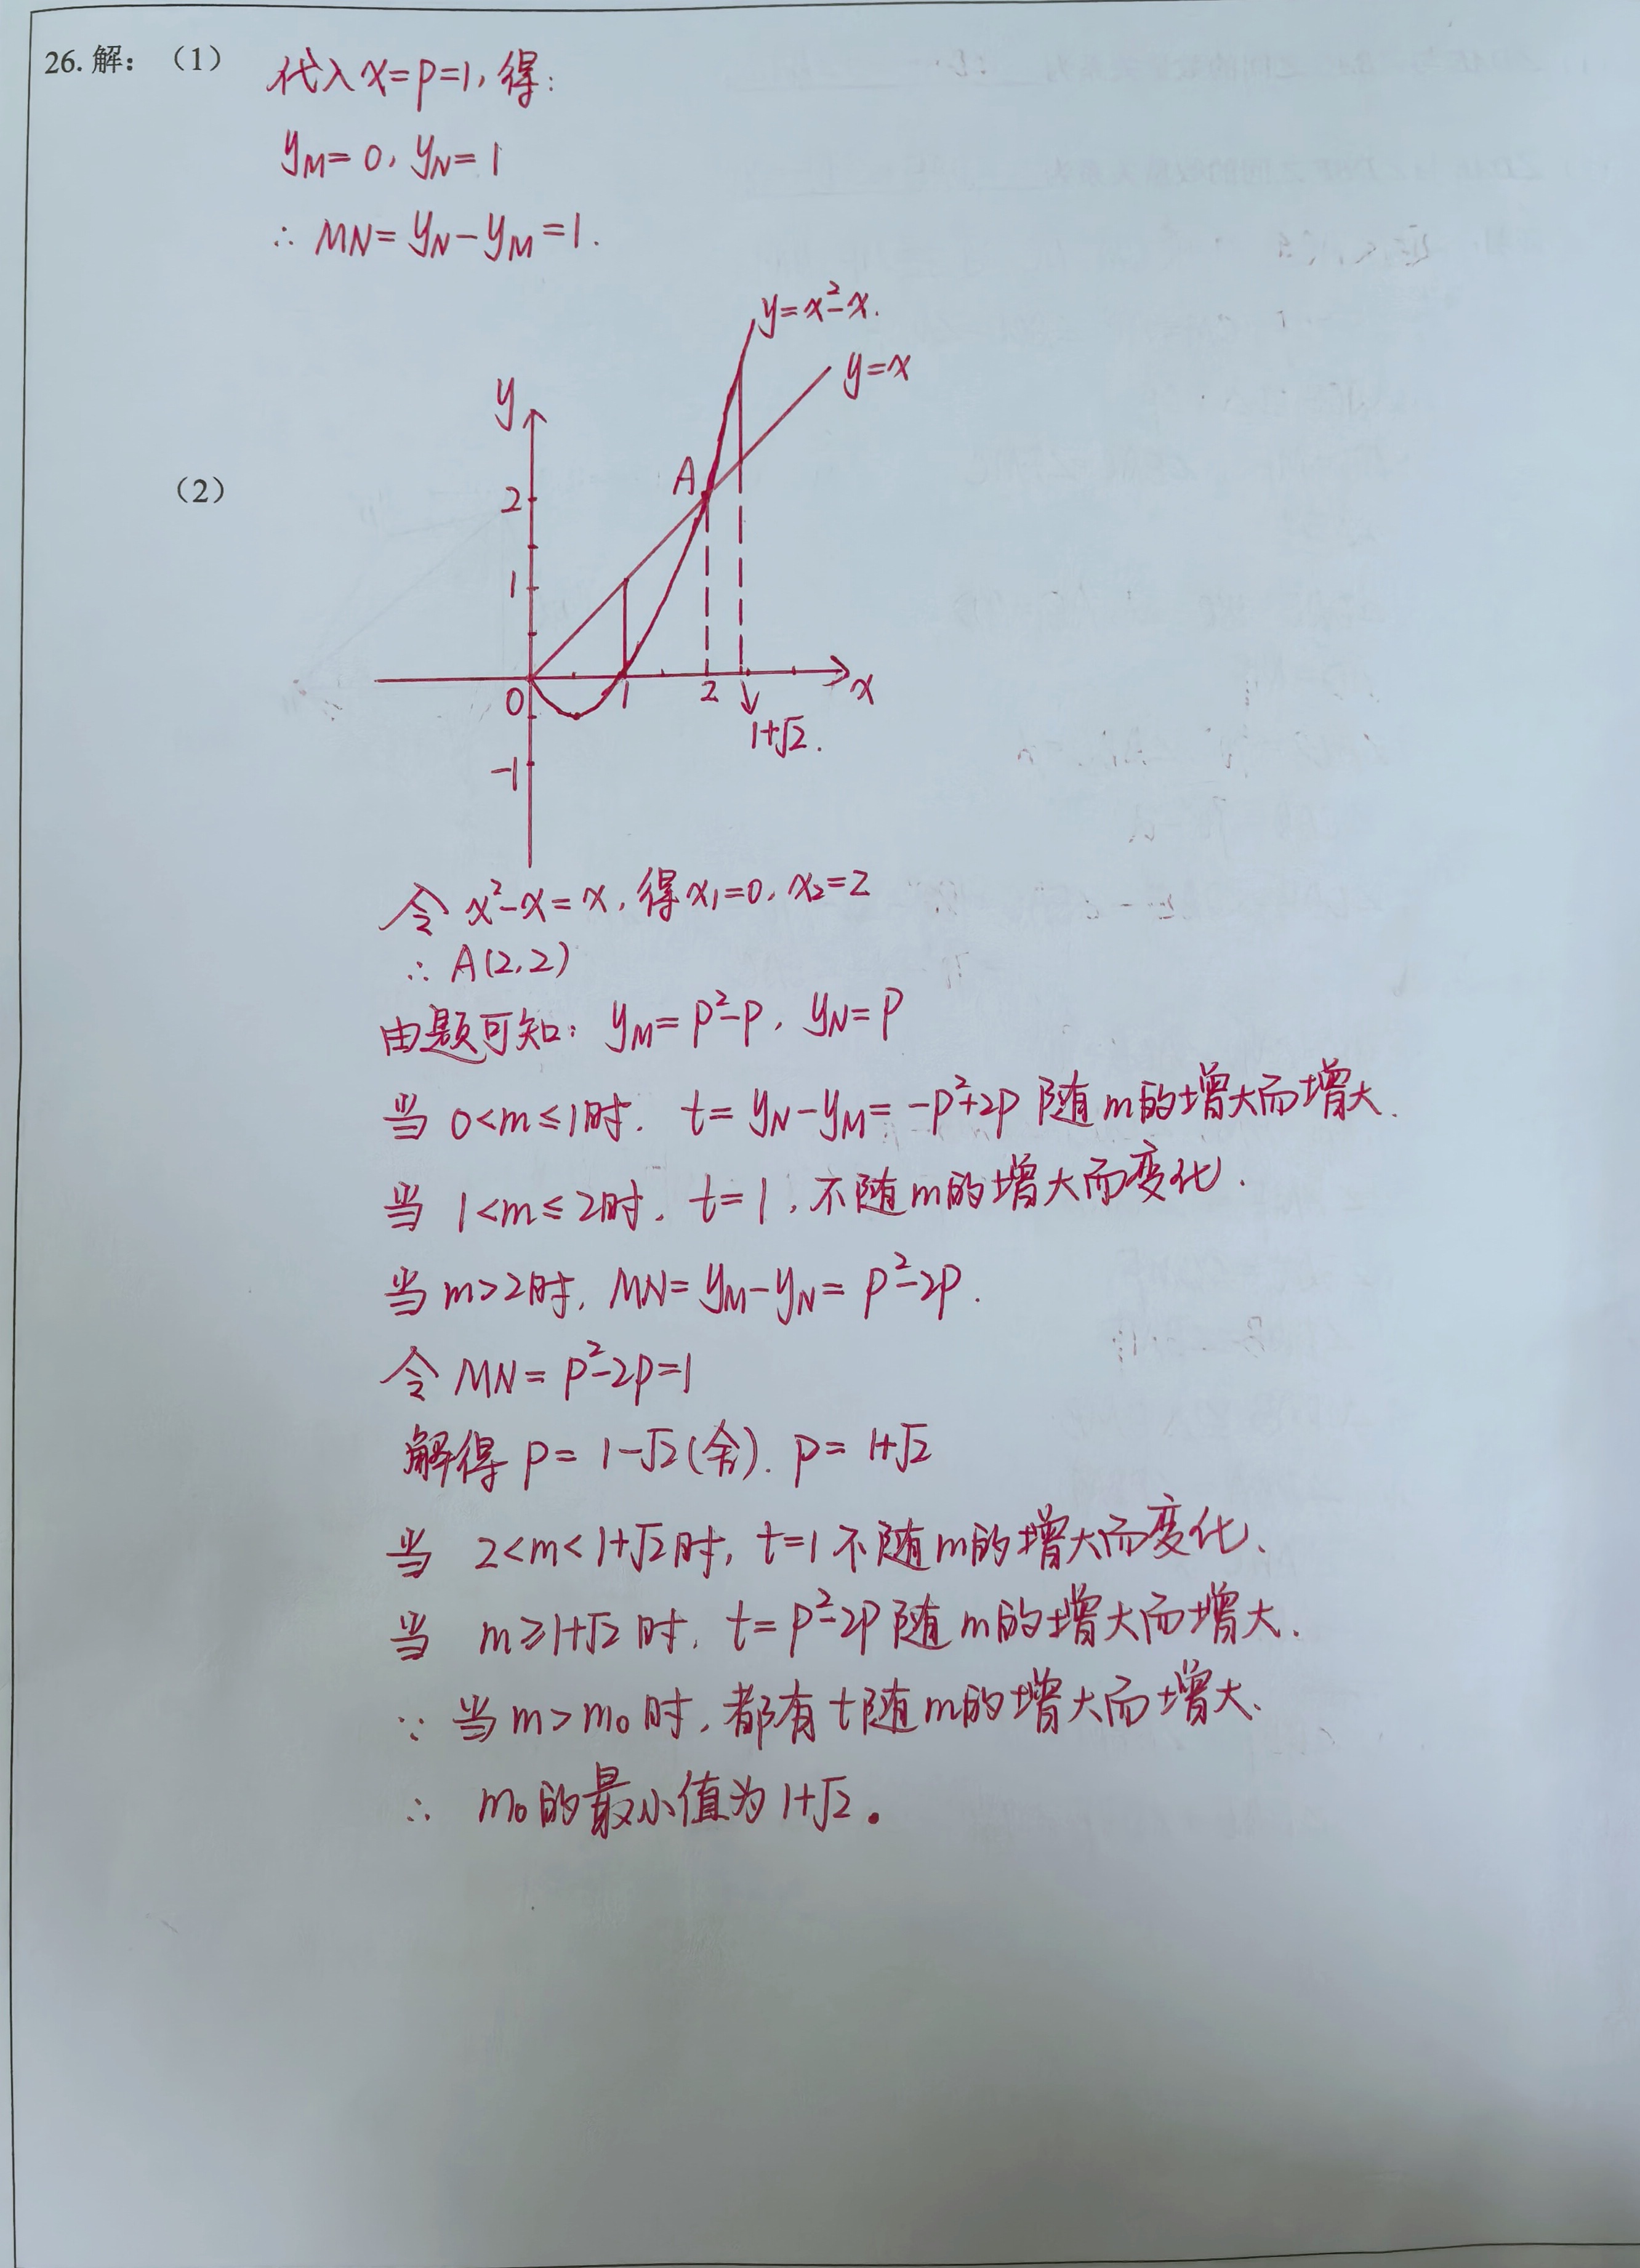 26. 解：（1） 代入x=p=1, 得：
yM=0, yN=1
∴ MN=yN-yM=1.
y=x²-x.
y=x
y
A
（2）
2
1
0
1
2
x
1+√2.
-1
令 x²-x=x, 得x₁=0, x₂=2
∴ A(2,2)
由题可知： yM=p²-p, yN=p
当 0<m≤1时. t=yN-yM=-p²+2p 随m的增大而增大.
当 1<m≤2时. t=1, 不随m的增大而变化.
当 m>2时, MN=yM-yN=p²-2p.
令 MN=p²-2p=1
解得 p=1-√2(舍). p=1+√2
当 2<m<1+√2时, t=1 不随m的增大而变化.
当 m≥1+√2时, t=p²-2p随m的增大而增大.
∵ 当m>m₀时, 都有t随m的增大而增大.
∴ m₀的最小值为1+√2。